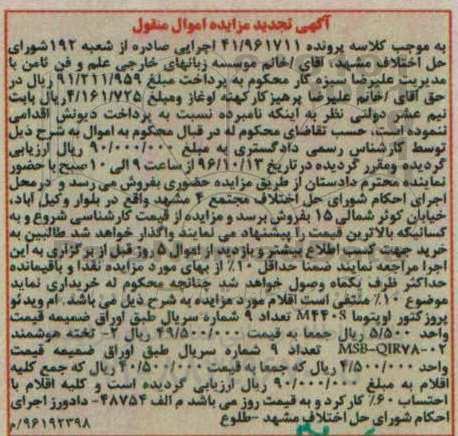 آگهی تجدید مزایده اموال منقول
به موجب کلاسه پرونده ۴۱/۹۶۱۷۱۱ اجرایی صادره از شعبه ۱۹۲شورای
حل اختلاف مشهد، آقای /خانم موسسه زبانهای خارجی علم و فن ثامن با
مدیریت علیرضا سبزه کار محکوم به پرداخت مبلغ ۹۱/۲۱۱/۹۵۹ ریال در
حق آقای /خانم علیرضا پرهیزکار کهنه اوغاز ومبلغ ۴/۱۶۱/۷۲۵ریال بابت
نیم عشر دولتی نظر به اینکه نامبرده نسبت به پرداخت دیونش اقدامی
ننموده است، حسب تقاضای محکوم له در قبال محکوم به اموال به شرح ذیل
توسط کارشناس رسمی دادگستری به مبلغ ۹۰/۰۰۰/۰۰۰ ریال ارزیابی
گردیده ومقرر گردیده در تاریخ ۹۶/۱۰/۱۳ از ساعت ۹ الی ۱۰ صبح با حضور
نماینده محترم دادستان از طریق مزایده حضوری بفروش می رسد و درمحل
اجرای احکام شورای حل اختلاف مجتمع ۴ مشهد واقع در بلوار وکیل آباد،
خیابان کوثر شمالی ۱۵ بفروش برسد و مزایده از قیمت کارشناسی شروع و به
کسانیکه بالاترین قیمت را پیشنهاد می نمایند واگذار خواهد شد طالبین به
خرید جهت کسب اطلاع بیشتر و بازدید از اموال ۵ روز قبل از برگزاری به این
اجرا مراجعه نمایند ضمنا حداقل ۱۰٪ از بهای مورد مزایده نقدا و باقیمانده
حداکثر ظرف یکماه وصول خواهد شد چنانچه محکوم له خریداری نماید
موضوع ۱۰٪ منتفی است اقلام مورد مزایده به شرح ذیل می باشد ۱م ویدئو
پروژکتور اوپتوما M۴۴۰S تعداد ۹ شماره سریال طبق اوراق ضمیمه قیمت
واحد ۵/۵۰۰ ریال جمعا به قیمت ۴۹/۵۰۰/۰۰۰ ریال ۲- تخته هوشمند
MSB-QIR۷۸-۰۲ تعداد ۹ شماره سریال طبق اوراق ضمیمه قیمت
واحد ۴/۵۰۰/۰۰۰ ریال که جمعا به قیمت ۴۰/۵۰۰/۰۰۰ ریال که جمع کلیه
اقلام به مبلغ ۹۰/۰۰۰/۰۰۰ ریال ارزیابی گردیده است و کلیه اقلام با
احتساب ۶۰٪ کارکرد و به قیمت روز می باشد م الف ۴۸۷۵۴- دادورز اجرای
احکام شورای حل اختلاف مشهد -طلوع
۹۶۱۹۲۳۹۸/م